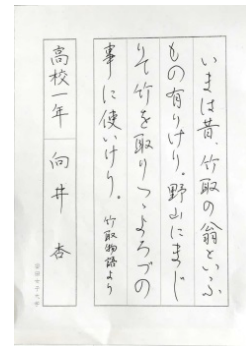 いまは昔、竹取の翁といふ
もの有りけり。野山にまじ
りて竹を取りつゝよろづの
事に使いけり。 竹取物語より
高校一年 向井 杏